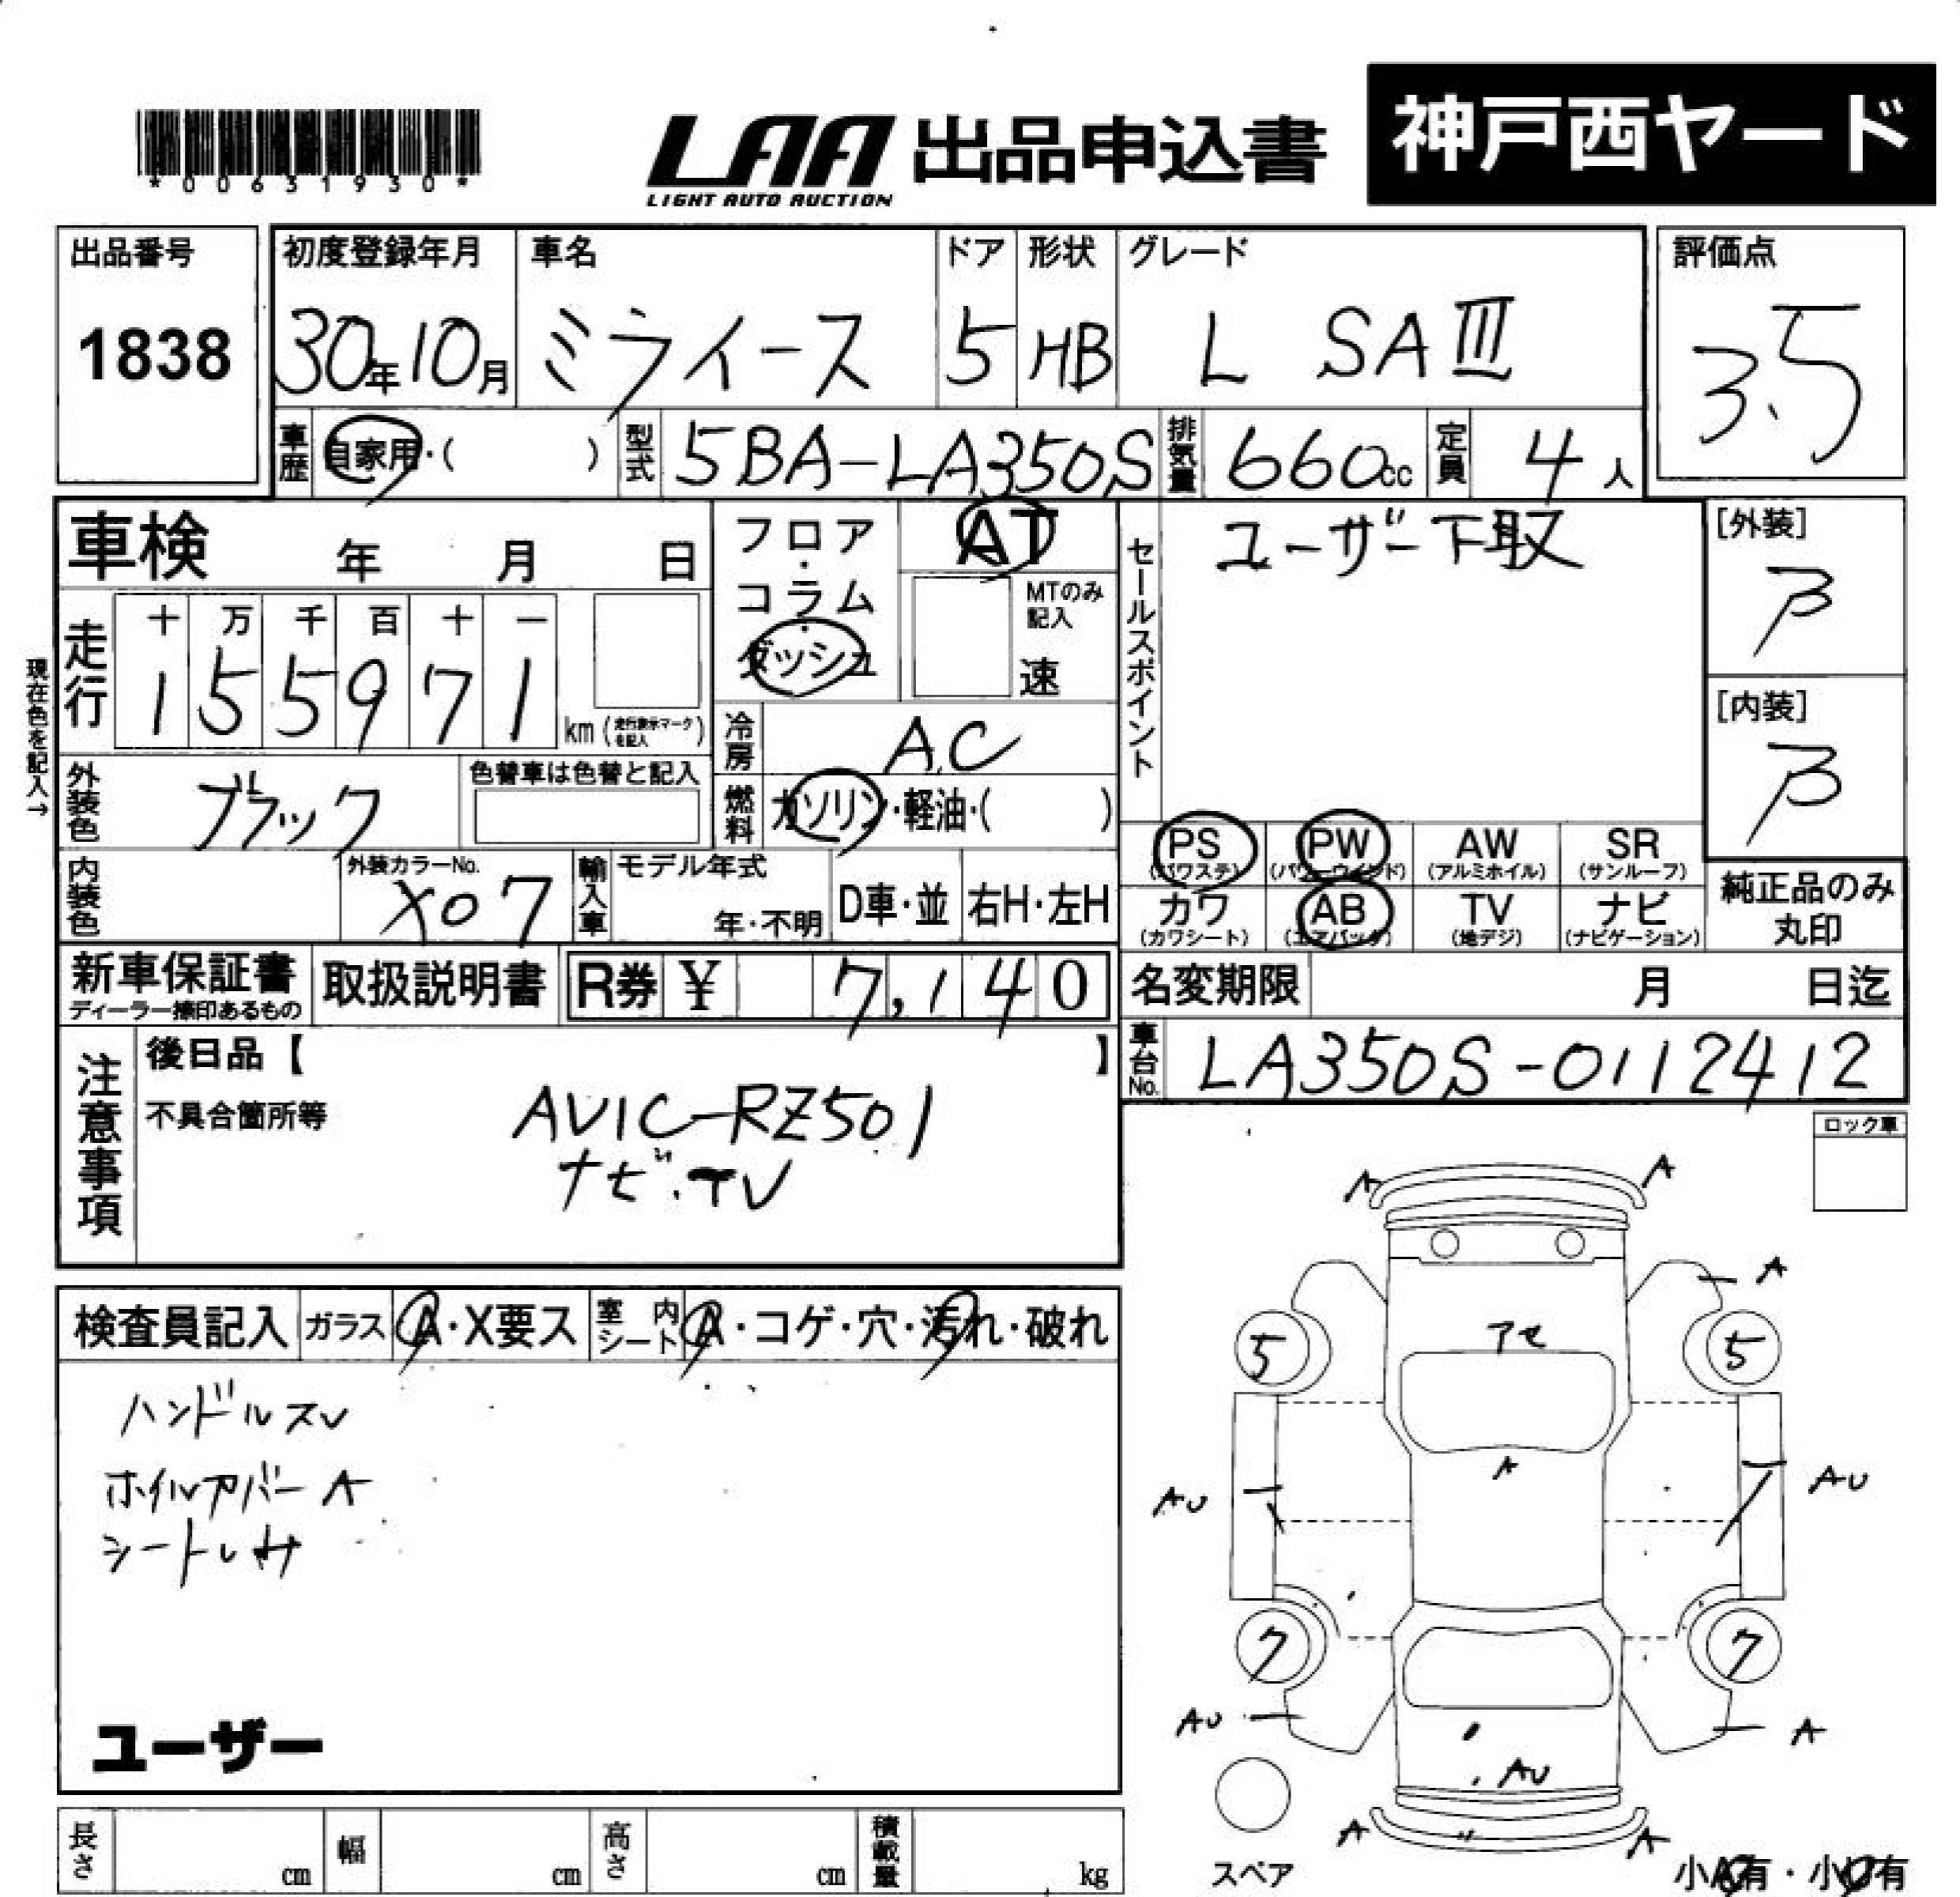 *00631930*
LAA 出品申込書 神戸西ヤード
LIGHT AUTO AUCTION
出品番号 初度登録年月 車名 ドア 形状 グレード 評価点
1838 30年10月 ミライース 5 HB L SAⅢ 3.5
車歴 自家用・( ) 型式 5BA-LA350S 排気量 660cc 定員 4人
車検 年 月 日
フロア・コラム・ダッシュ
AT
MTのみ記入
速
セールスポイント
ユーザー下取
[外装]
B
[内装]
B
現在色を記入→
走行 十 万 千 百 十 一
1 5 5 9 7 1 km(走行表示マークを記入)
冷房 AC
外装色 ブラック 色替車は色替と記入
燃料 ガソリン・軽油・( )
PS PW AW SR
(パワステ) (パワーウインド) (アルミホイル) (サンルーフ)
カワ AB TV ナビ
(カワシート) (エアバッグ) (地デジ) (ナビゲーション)
純正品のみ
丸印
内装色 外装カラーNo. X07 輸入車 モデル年式 年・不明 D車・並 右H・左H
新車保証書 取扱説明書 R券 ¥ 7,140
ディーラー捺印あるもの
名変期限 月 日迄
車台No. LA350S-0112412
注意事項
後日品【 】
不具合箇所等
AVIC-RZ501
ナビ.TV
ロック車
検査員記入 ガラス A・X要ス 室内シート A・コゲ・穴・汚れ・破れ
ハンドルスレ
ホイルカバーA
ユーザー
A A
A
アセ
5 5
A
AU AU
7 7
AU A
AU
A A
スペア
小A有・小U有
長さ cm 幅 cm 高さ cm 積載量 kg